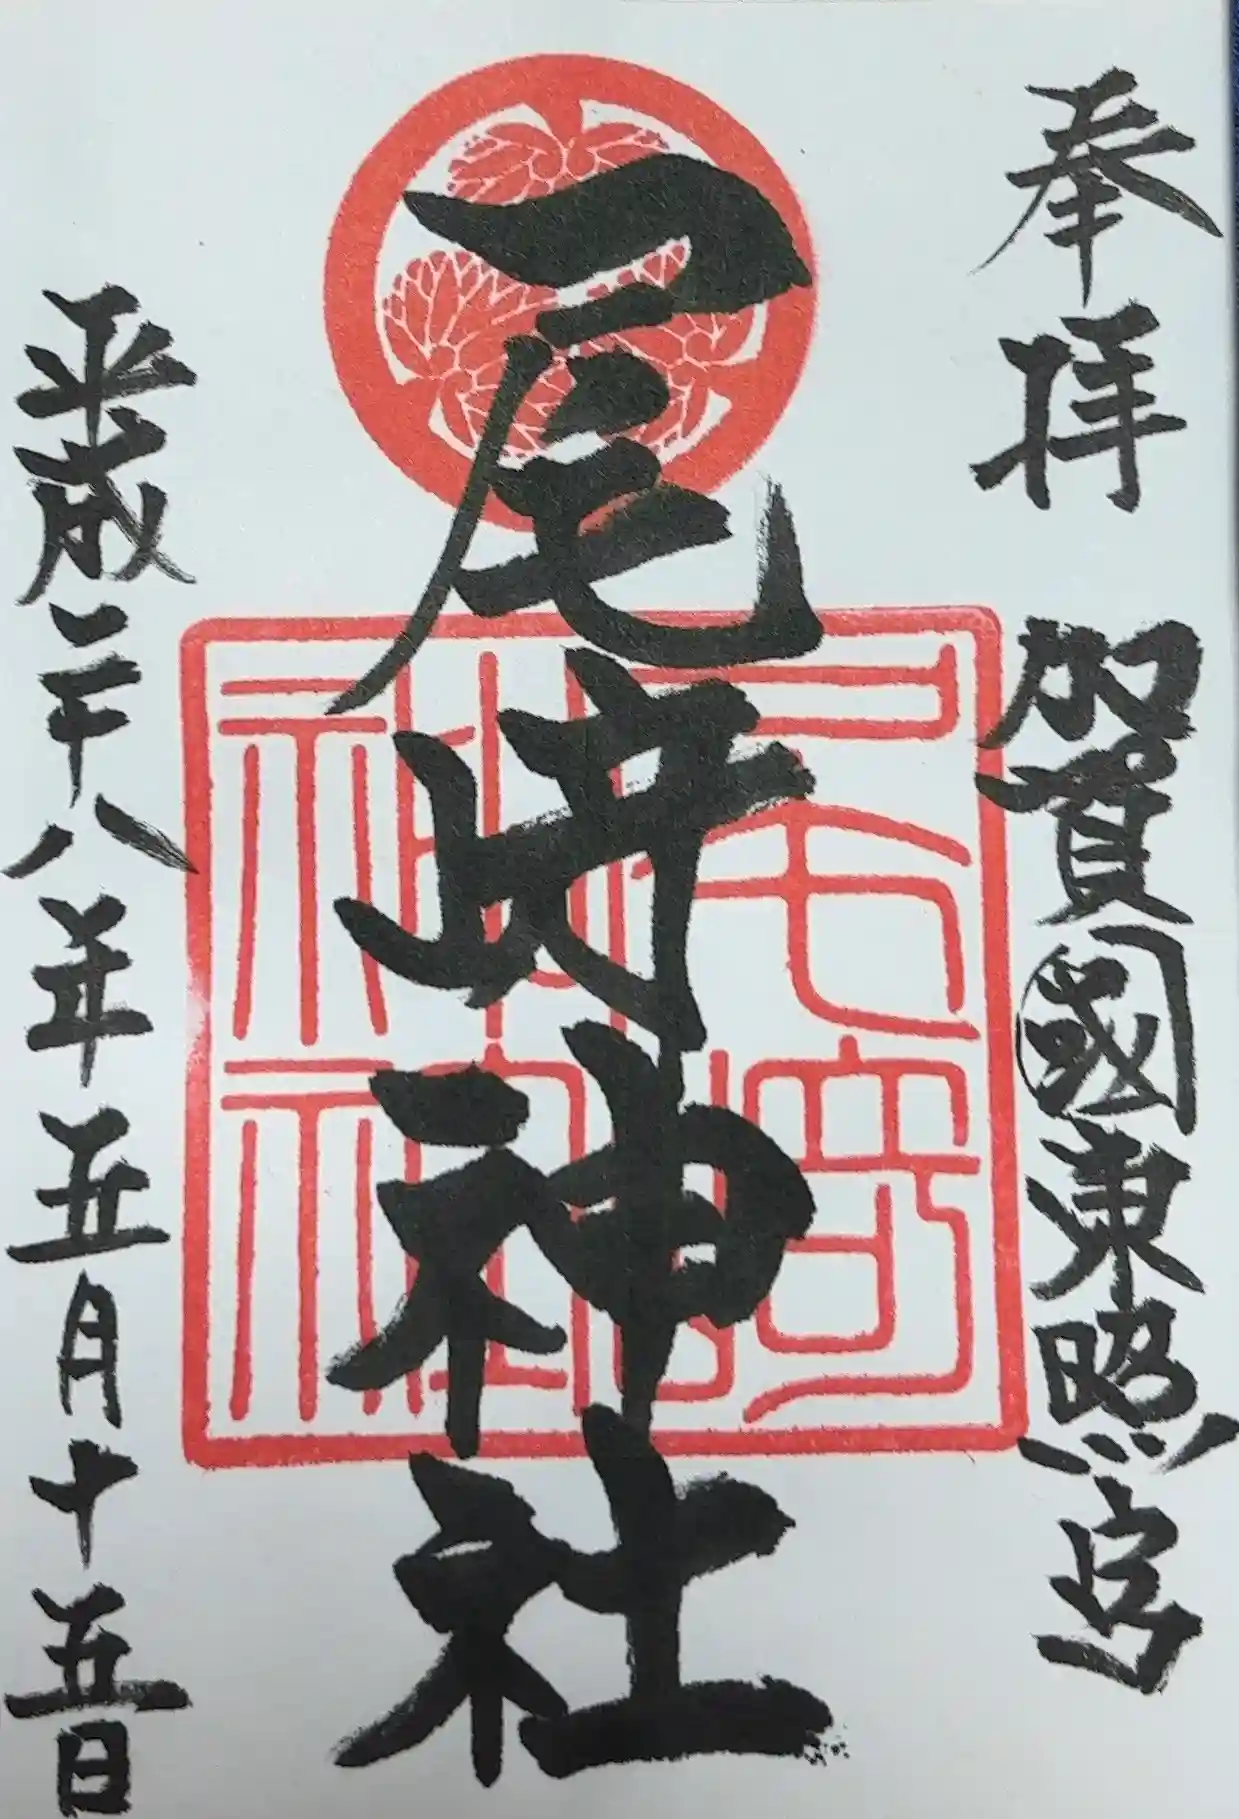 奉拝 加賀國東照宮
尾崎神社
平成二十八年五月十五日
尾崎
神社